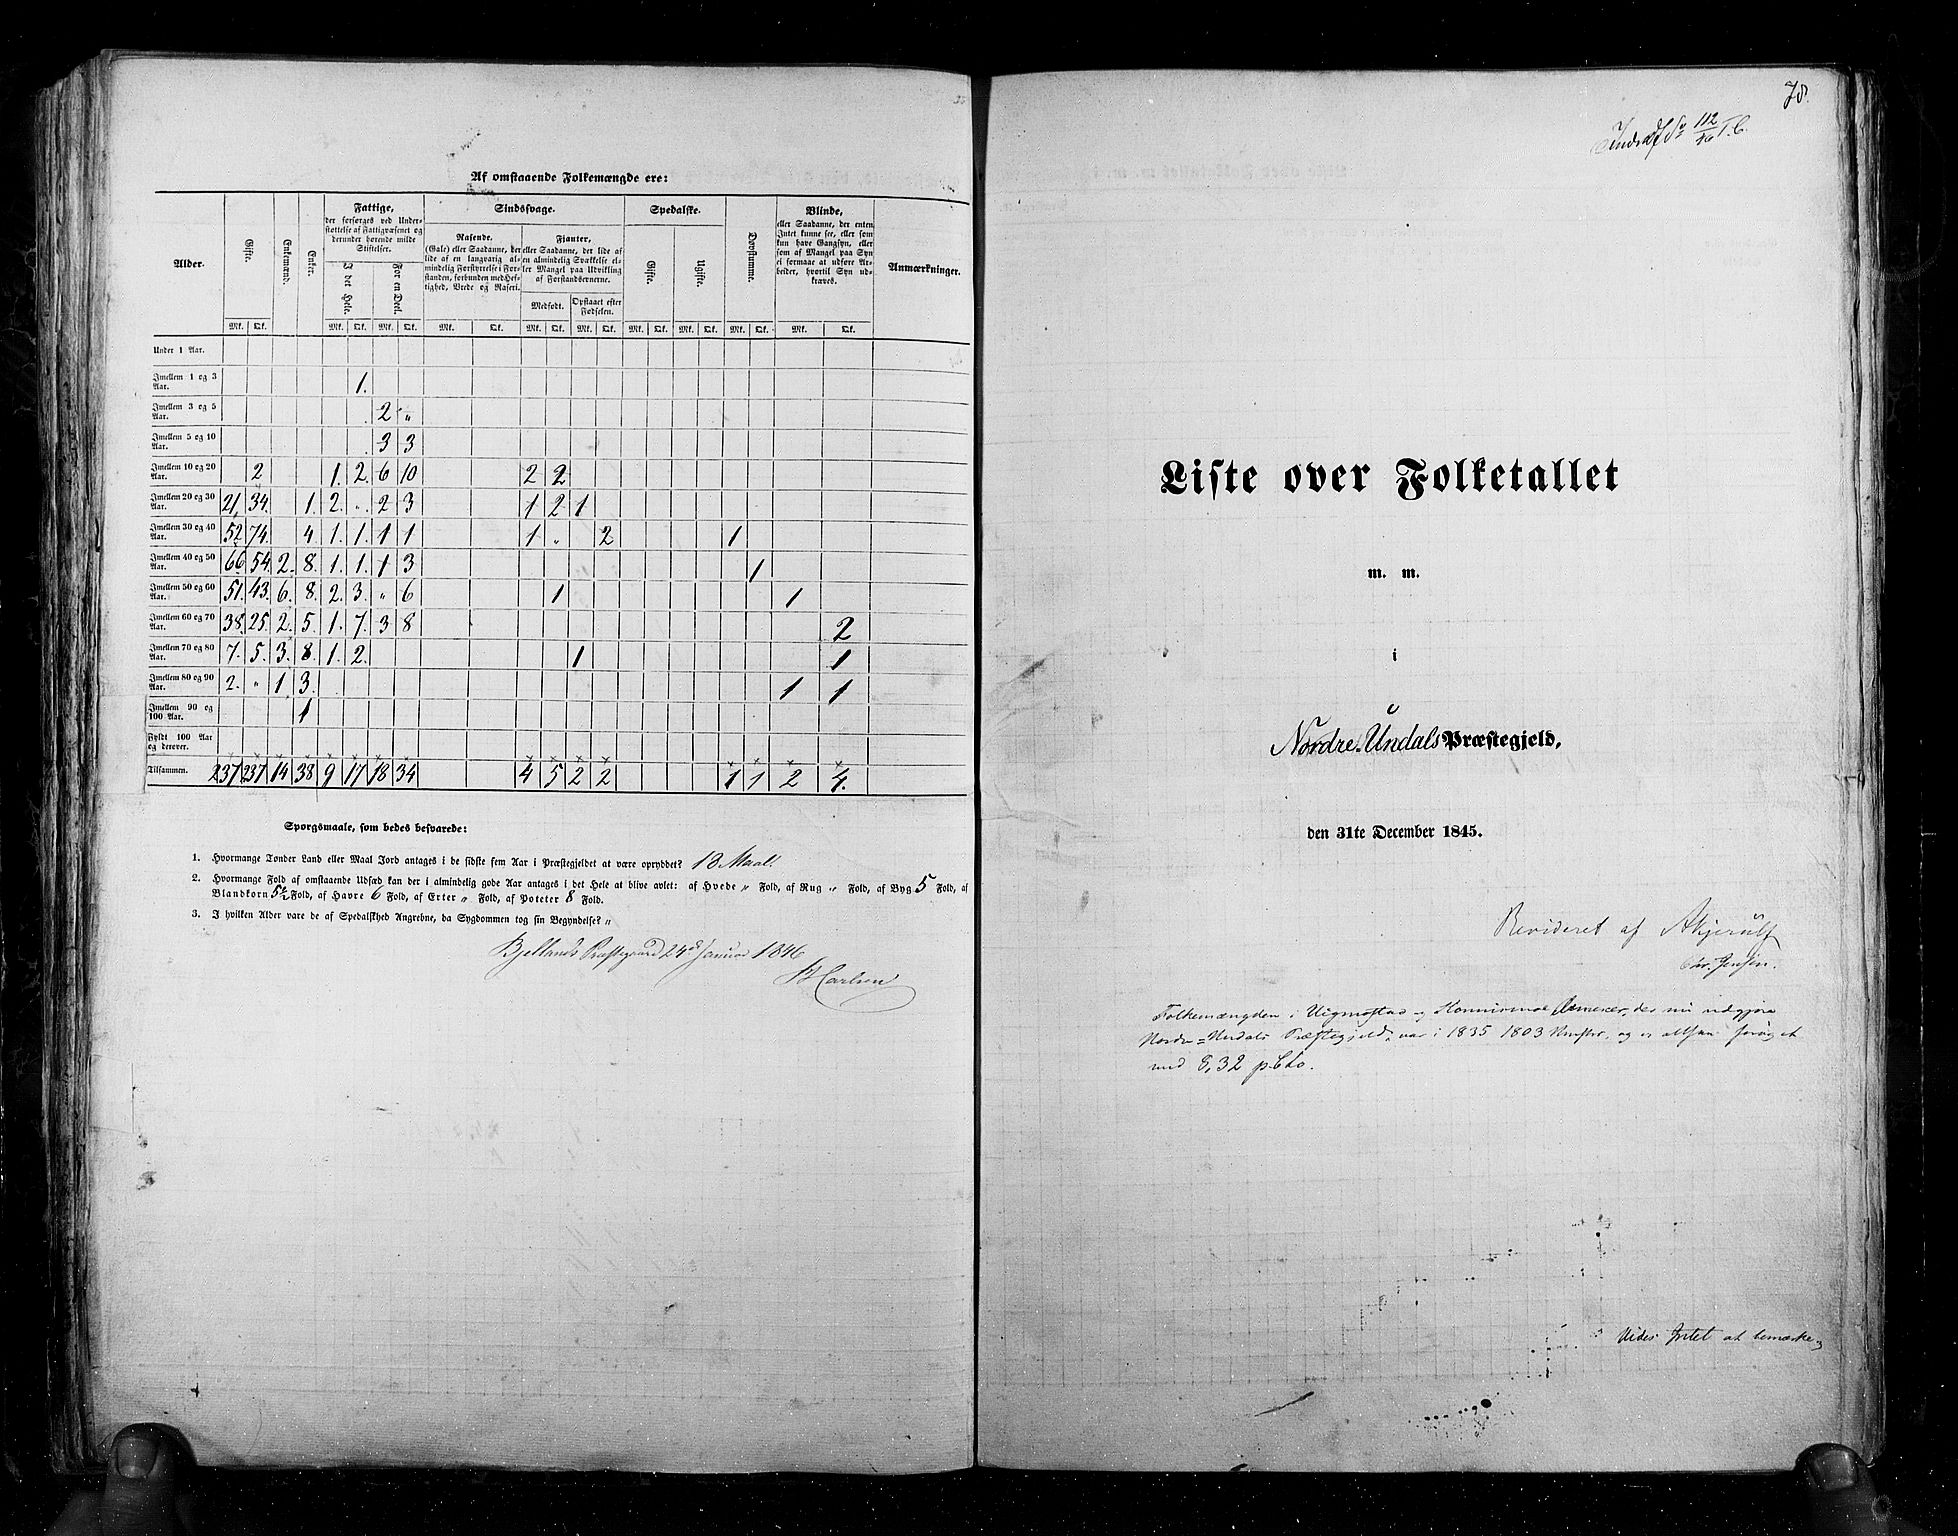 Af omstaaende Folkemængde ere:
Alder.
Gifte.
Enkemænd.
Enker.
Fattige,
der forsørges ved Under-
støttelse af Fattigvæsenet og
derunder hørende milde
Stiftelser.
I det Hele.
For en Deel.
Sindssvage.
Rasende.
(Gale) eller Saadanne, der
lide af en langvarig al-
mindelig Forstyrrelse i For-
standen, forbunden med Hef-
tighed, Vrede og Raseri.
Fjanter,
eller Saadanne, der lide af
en almindelig Svækkelse el-
ler Mangel paa Udvikling
af Forstandsevnerne.
Medfødt.
Opstaaet efter
Fødselen.
Spedalske.
Gifte.
Ugifte.
Døvstumme.
Blinde,
eller Saadanne, der enten
Intet kunne see, eller som
kun have Gangsyn, eller
som af Mangel paa Syn
ei formaae at udføre Ar-
beider, hvortil Syn ud-
kræves.
Anmærkninger.
Mk. Qk. Mk. Qk. Mk. Qk. Mk. Qk. Mk. Qk. Mk. Qk. Mk. Qk. Mk. Qk. Mk. Qk. Mk. Qk.
Under 1 Aar.
Imellem 1 og 3 Aar. 1.
Imellem 3 og 5 Aar. 2 „
Imellem 5 og 10 Aar. 3 3
Imellem 10 og 20 Aar. 2 1. 2. 6 10 2 2
Imellem 20 og 30 Aar. 21, 34. 1. 2. „ 2 3 1 2 1
Imellem 30 og 40 Aar. 52 74. 4 1. 1. 1 1 1 „ 2 1
Imellem 40 og 50 Aar. 66 54. 2. 8. 1. 1. 1 3 1
Imellem 50 og 60 Aar. 51. 43. 6. 8. 2. 3. „ 6 1 1
Imellem 60 og 70 Aar. 38. 25. 2. 5. 1. 7. 3 8 2
Imellem 70 og 80 Aar. 7. 5. 3. 8. 1. 2. 1 1
Imellem 80 og 90 Aar. 2. „ 1 3. 1 1
Imellem 90 og 100 Aar. 1
Fyldt 100 Aar og derover.
Tilsammen. 237 237 14 38 9 17 18 34 4 5 2 2 1 1 2 4.
Spørgsmaale, som bedes besvarede:
1. Hvormange Tønder Land eller Maal Jord antages i de sidste fem Aar i Præstegjeldet at være opryddet? 13 Maal.
2. Hvormange Fold af omstaaende Udsæd kan der i almindelig gode Aar antages i det Hele at blive avlet: af Hvede „ Fold, af Rug „ Fold, af Byg 5 Fold, af
Blandkorn 5½ Fold, af Havre 6 Fold, af Erter „ Fold, af Poteter 8 Fold.
3. I hvilken Alder vare de af Spedalskhed Angrebne, da Sygdommen tog sin Begyndelse? „
Bjellands Præstegaard 24de Januar 1846
Carlsen
78.
112/46 T.C.
Liste over Folketallet
m. m.
i
Nordre Undals Præstegjeld,
den 31te December 1845.
Revideret af AKjerulf
Chr. Jensen.
Folkemængden i Vigmostad og Konnismoe Annexer, der nu udgjøre
Nordre-Undals Præstegjeld, var i 1835 1803 Mnskr, og er altsaa forøget
med 8,32 pCto.
Vides Intet at bemærke